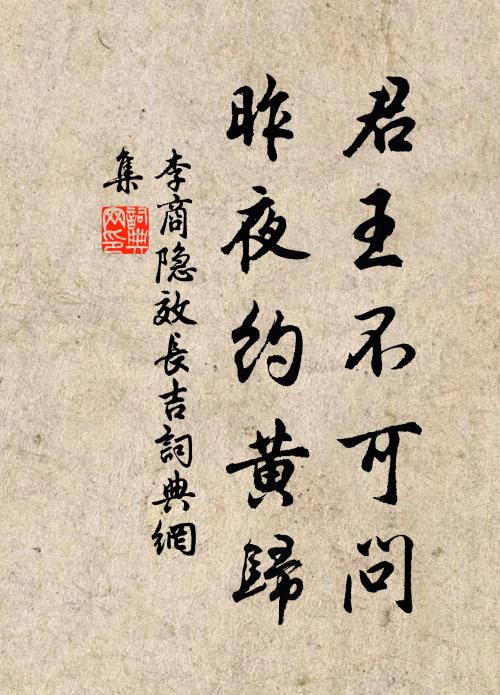 君王不可問
昨夜約黄歸
李商隐效長吉詞典網
集
詞典網印